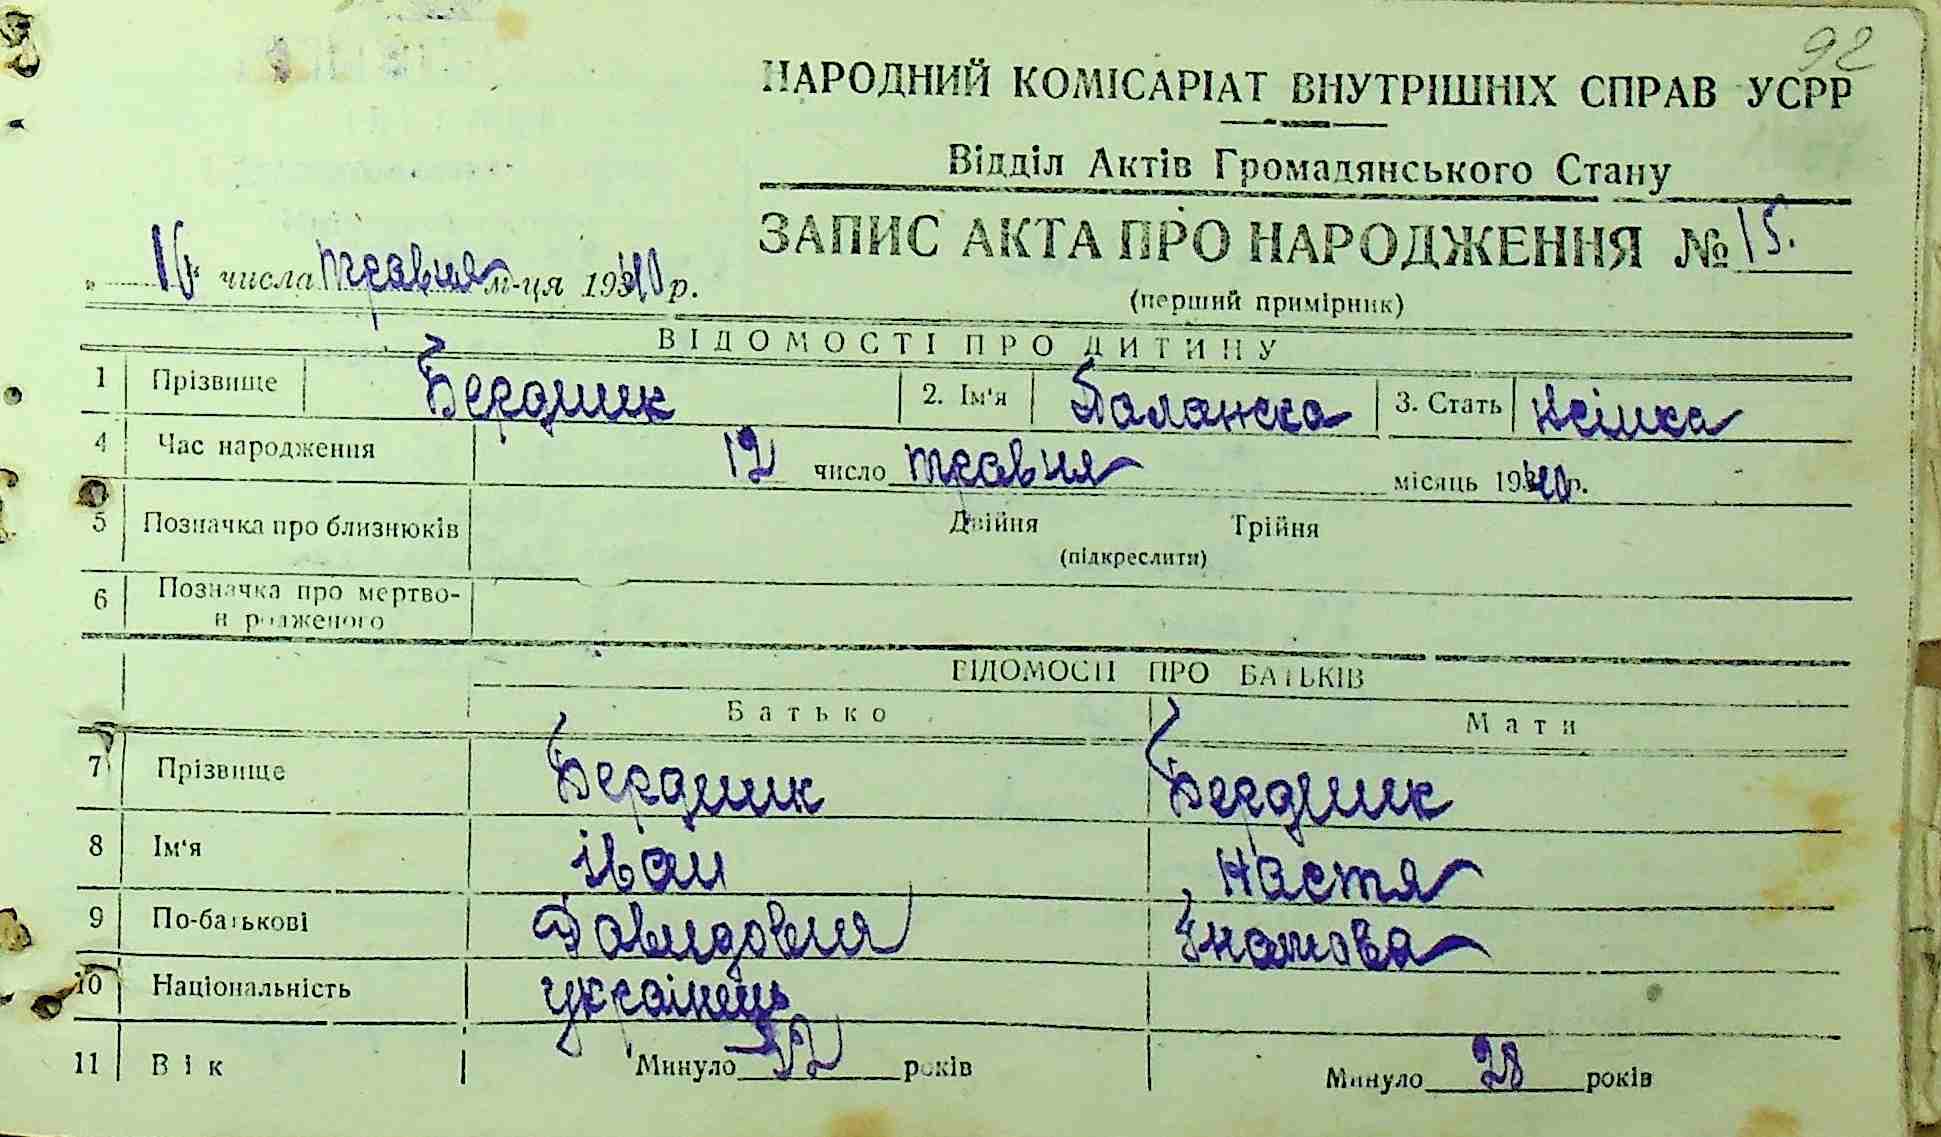 92
НАРОДНИЙ КОМІСАРІАТ ВНУТРІШНІХ СПРАВ УСРР
Відділ Актів Громадянського Стану
ЗАПИС АКТА ПРО НАРОДЖЕННЯ № 15.
(перший примірник)
„16“ числа травня м-ця 1940 р.
ВІДОМОСТІ ПРО ДИТИНУ
1 Прізвище Бердник 2. Ім'я Палажка 3. Стать жінка
4 Час народження 12 число травня місяць 1940 р.
5 Позначка про близнюків Двійня Трійня
(підкреслити)
6 Позначка про мертво-
народженого
ВІДОМОСТІ ПРО БАТЬКІВ
Батько Мати
7 Прізвище Бердник Бердник
8 Ім'я Іван Настя
9 По-батькові Давидович Гнатова
10 Національність українець
11 Вік Минуло 32 років Минуло 28 років